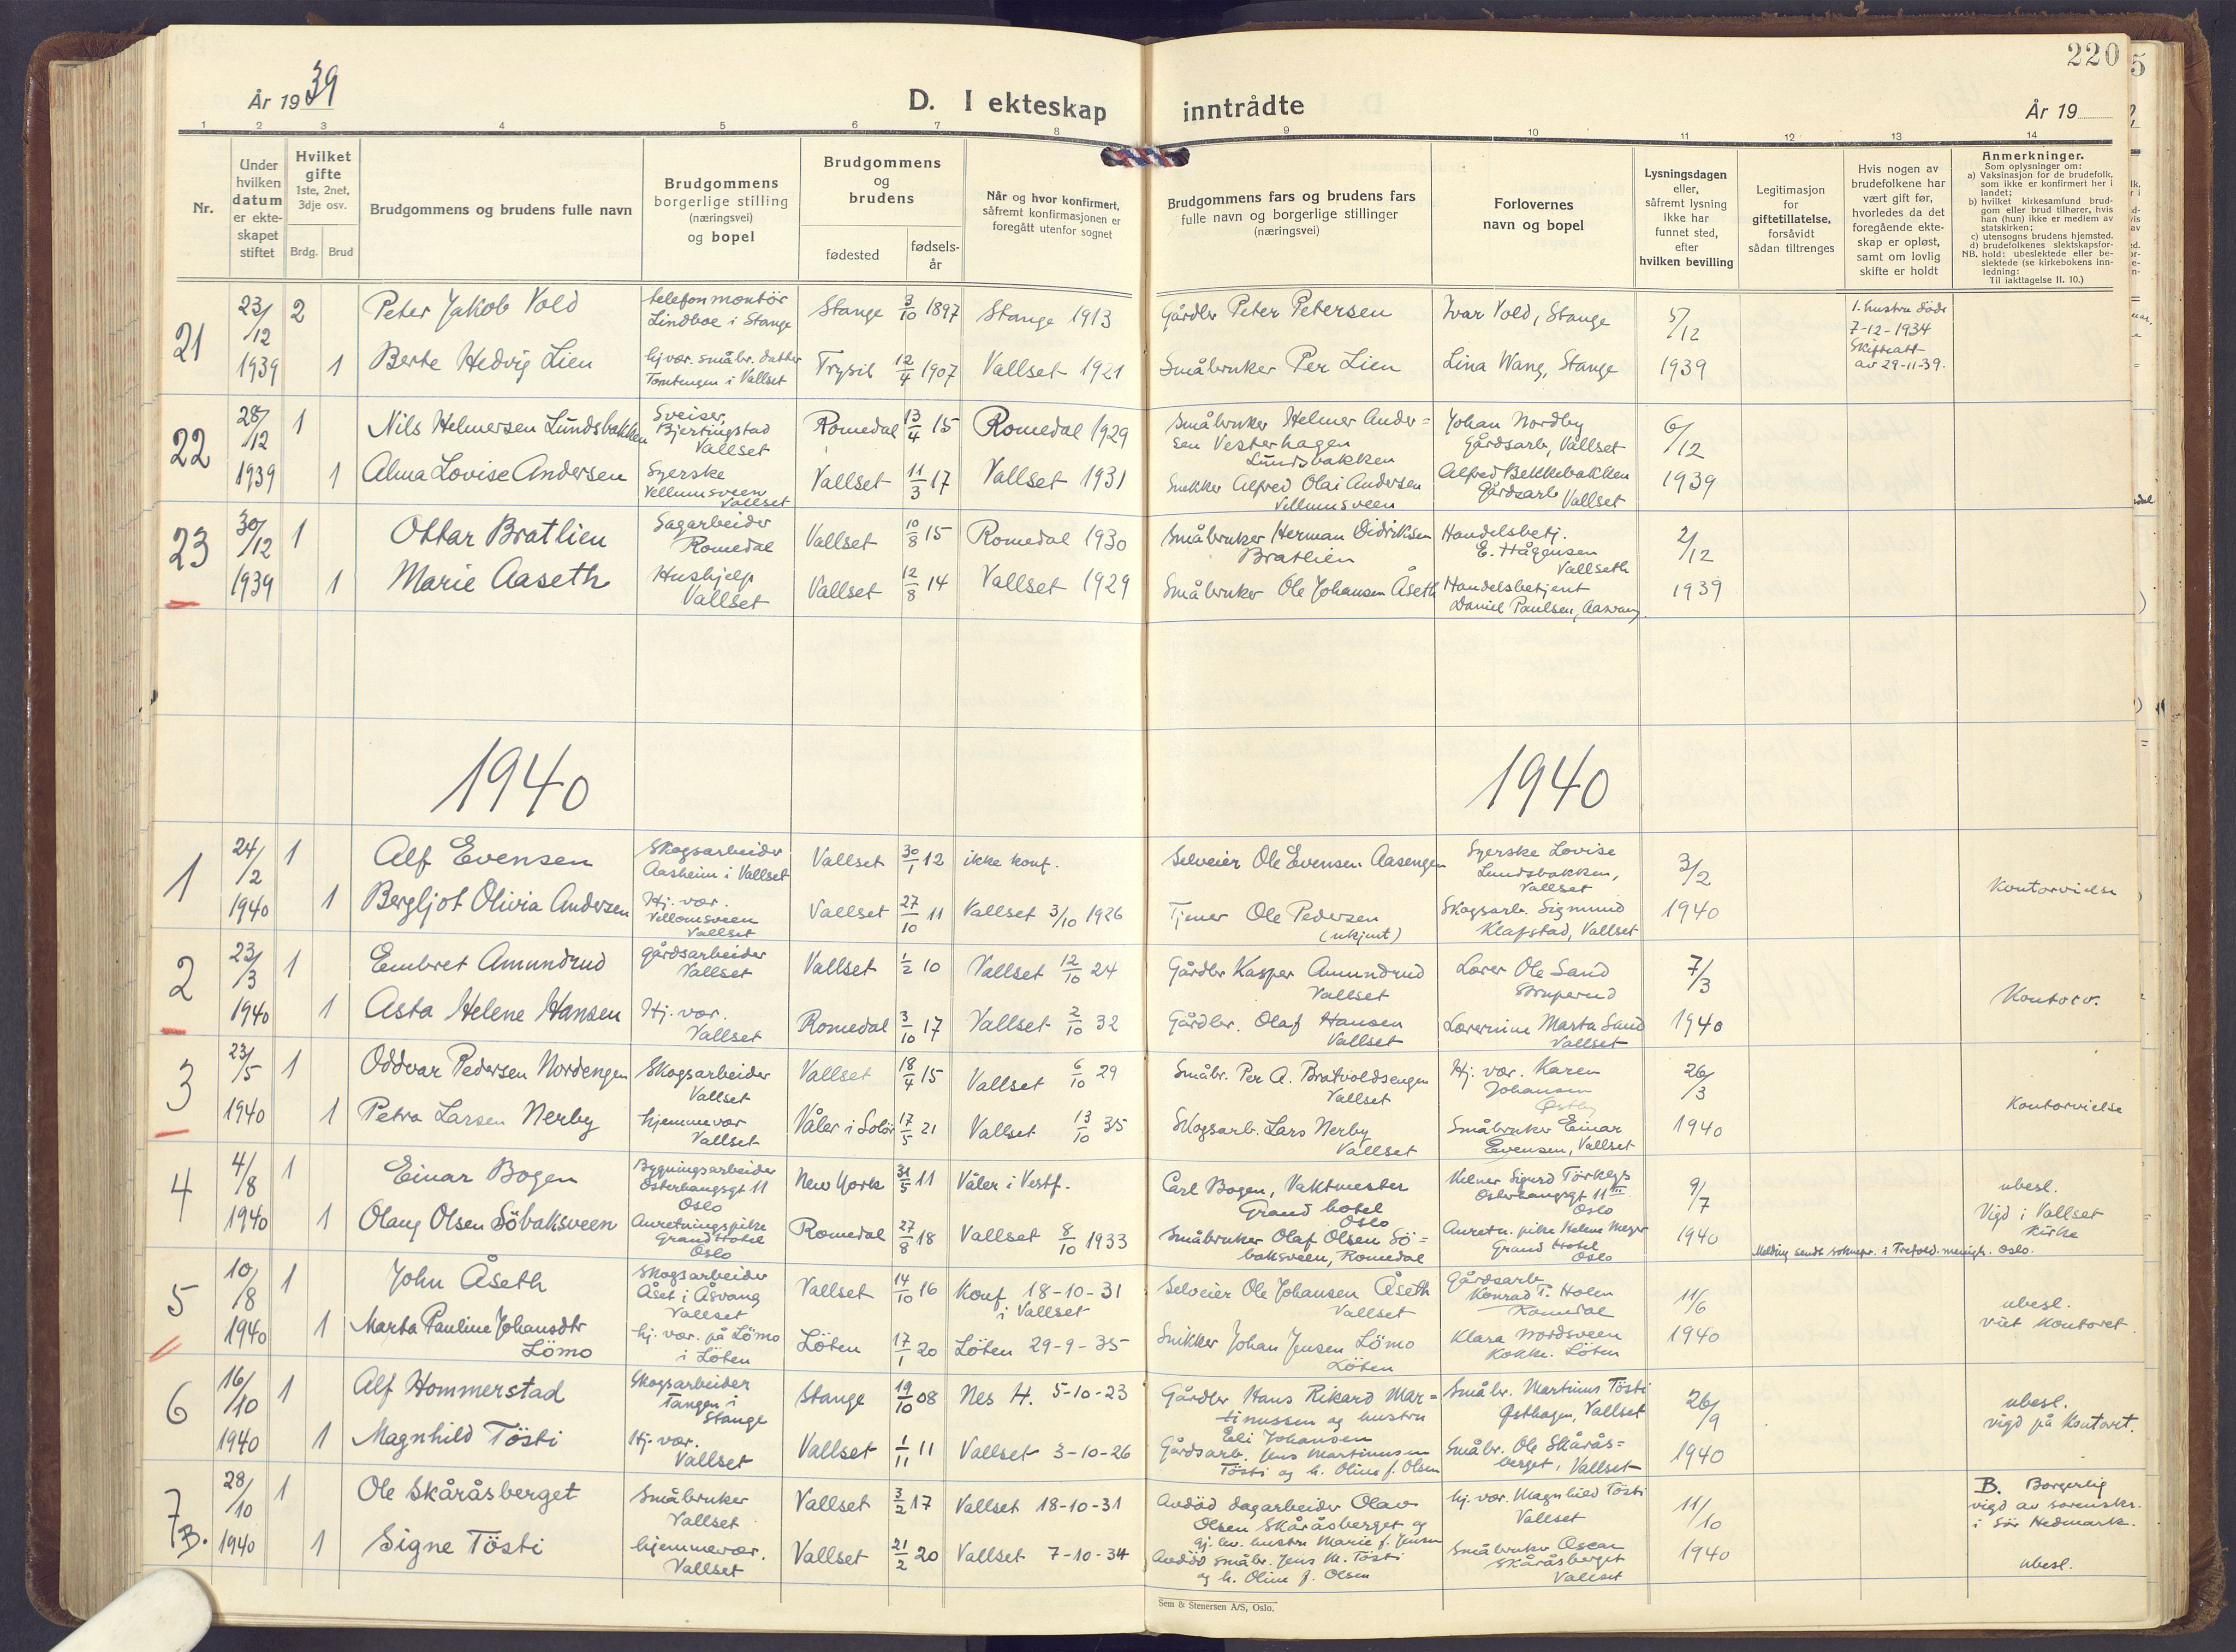 220
År 1939
D. I ekteskap inntrådte
År 19
1 2 3 4 5 6 7 8 9 10 11 12 13 14
Nr.
Under hvilken datum er ekteskapet stiftet
Hvilket gifte 1ste, 2net, 3dje osv.
Brdg. Brud
Brudgommens og brudens fulle navn
Brudgommens borgerlige stilling (næringsvei) og bopel
Brudgommens og brudens
fødested
fødselsår
Når og hvor konfirmert, såfremt konfirmasjonen er foregått utenfor sognet
Brudgommens fars og brudens fars fulle navn og borgerlige stillinger (næringsvei)
Forlovernes navn og bopel
Lysningsdagen eller, såfremt lysning ikke har funnet sted, efter hvilken bevilling
Legitimasjon for giftetillatelse, forsåvidt sådan tiltrenges
Hvis nogen av brudefolkene har vært gift før, hvorledes da det foregående ekteskap er opløst, samt om lovlig skifte er holdt
Anmerkninger.
Som oplysninger om:
a) Vaksinasjon for de brudefolk, som ikke er konfirmert her i landet;
b) hvilket kirkesamfund brudgom eller brud tilhører, hvis han (hun) ikke er medlem av statskirken;
c) utensogns brudens hjemsted.
d) brudefolkenes slektskapsforhold: ubeslektede eller beslektede (se kirkebokens innledning:
NB. Til iakttagelse II. 10.)
21 23/12 1939 2 Peter Jakob Vold telefonmontör Lindboe i Stange Stange 3/10 1897 Stange 1913 Gårdbr Peter Petersen Ivar Vold, Stange 5/12 1939 1. hustru döde 7-12-1934 Skifteatt av 29-11-39.
1 Berte Hedvig Lien hj.vær. småbr. datter Tomtengen i Vallset Trysil 12/4 1907 Vallset 1921 Småbruker Per Lien Lina Wang, Stange
22 28/12 1939 1 Nils Helmersen Lundsbakken Sveiser, Bjertingstad Vallset Romedal 13/4 15 Romedal 1929 Småbruker Helmer Andersen Vesterhagen Lundsbakken Johan Nordby gårdsarb, Vallset 6/12 1939
1 Alma Lovise Andersen Syerske Vellumsveen Vallset Vallset 11/3 17 Vallset 1931 Snekker Alfred Olai Andersen Vellumsveen Alfred Bekkebakken Gårdsarb Vallset
23 30/12 1939 1 Ottar Bratlien Sagarbeider Romedal Vallset 10/8 15 Romedal 1930 Småbruker Herman Didriksen Bratlien Handelsbetj. E. Hågensen Vallseth 2/12 1939
1 Marie Aaseth Hushjelp Vallset Vallset 12/8 14 Vallset 1929 Småbruker Ole Johansen Åseth Handelsbetjent Daniel Paulsen, Aasvang
1940 1940
1 24/2 1940 1 Alf Evensen Skogsarbeider Aasheim i Vallset Vallset 30/1 12 ikke konf. Selveier Ole Evensen Aasengen Syerske Lovise Lundsbakken, Vallset 3/2 1940 Kontorvielse
1 Bergljot Olivia Andersen Hj. vær. Vellomsveen Vallset Vallset 27/10 11 Vallset 3/10 1926 Tjener Ole Pedersen (ukjent) Skogsarb. Sigmund Klafstad, Vallset
2 23/3 1940 1 Embret Amundrud gårdsarbeider Vallset Vallset 1/2 10 Vallset 12/10 24 Gårdbr Kasper Amundrud Vallset Lærer Ole Sand Struperud 7/3 1940 Kontorv.
1 Asta Helene Hansen Hj. vær. Vallset Romedal 3/10 17 Vallset 2/10 32 Gårdbr. Olaf Hansen Vallset Lærerinne Marta Sand Vallset
3 23/5 1940 1 Oddvar Pedersen Nordengen Skogsarbeider Vallset Vallset 18/4 15 Vallset 6/10 29 Småbr. Per A. Bratvoldsengen Vallset Hj. vær. Karen Johansen Østby 26/3 1940 Kontorvielse
1 Petra Larsen Nerby hjemmevær Vallset Våler i Solör 17/5 21 Vallset 13/10 35 Skogsarb. Lars Nerby Vallset Småbruker Einar Evensen, Vallset
4 4/8 1940 1 Einar Bogen Bygningsarbeider Österhausgt 11 Oslo New York 31/5 11 Våler i Vestf. Carl Bogen, Vaktmester Grand hotel Oslo Kelner Sigurd Österhausgt 11 III Oslo 9/7 1940 ubesl. Vigd i Vallset Kirke
1 Olaug Olsen Söbaksveen Anretningspike Grand Hotel Oslo Romedal 27/8 18 Vallset 8/10 1933 Småbruker Olaf Olsen Söbaksveen, Romedal Anretn. pike Helene Meyer Grand Hotel Oslo Melding sendt soknepr. i Trefold. menigh. Oslo.
5 10/8 1940 1 John Åseth Skogsarbeider Åset i Åsvang Vallset Vallset 14/10 16 Konf 18-10-31 i Vallset Selveier Ole Johansen Åseth Vallset gårdsarb Konrad T. Holen Romedal 11/6 1940 ubesl. viet Kontoret
1 Marta Pauline Johansdtr Lömo hj. vær. på Lömo i Löten Löten 17/1 20 Löten 29-9-35 Snikker Johan Jensen Lömo Löten Klara Nordsveen Kokke. Löten
6 16/10 1940 1 Alf Hommerstad Skogsarbeider Tangen i Stange Stange 19/10 08 Nes H. 5-10-23 Gårdbr Hans Rikard Martinussen og hustru Eli Johansen Småbr. Martinus Tösti Østhagen, Vallset 26/9 1940 ubesl. vigd på Kontoret.
1 Magnhild Tösti Hj. vær. Vallset Vallset 1/11 11 Vallset 3-10-26 Gårdsarb. Jens Martinussen Tösti og h. Oline f. Olsen Småbr. Ole Skåråsberget, Vallset
7 B. 28/10 1940 1 Ole Skåråsberget Småbruker Vallset Vallset 3/2 17 Vallset 18-10-31 Avdöd dagarbeider Olav Olsen Skåråsberget og gj. lev. hustru Marie f. Jensen hj. vær. Magnhild Tösti Vallset 11/10 1940 B. Borgerlig vigd av sorenskr. i Sör Hedmark. ubesl.
1 Signe Tösti hjemmevær. Vallset Vallset 21/2 20 Vallset 7-10-34 Avdöd småbr. Jens M. Tösti og h. Oline f. Olsen Småbruker Oscar Skåråsberget Vallset
Sem & Stenersen A/S, Oslo.